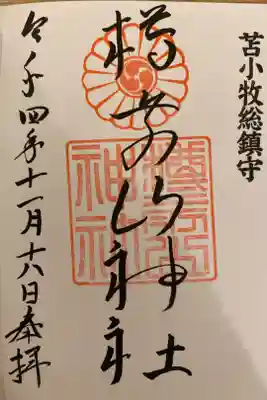 苫小牧総鎮守
樽前山神社
令和四年十一月十八日奉拝